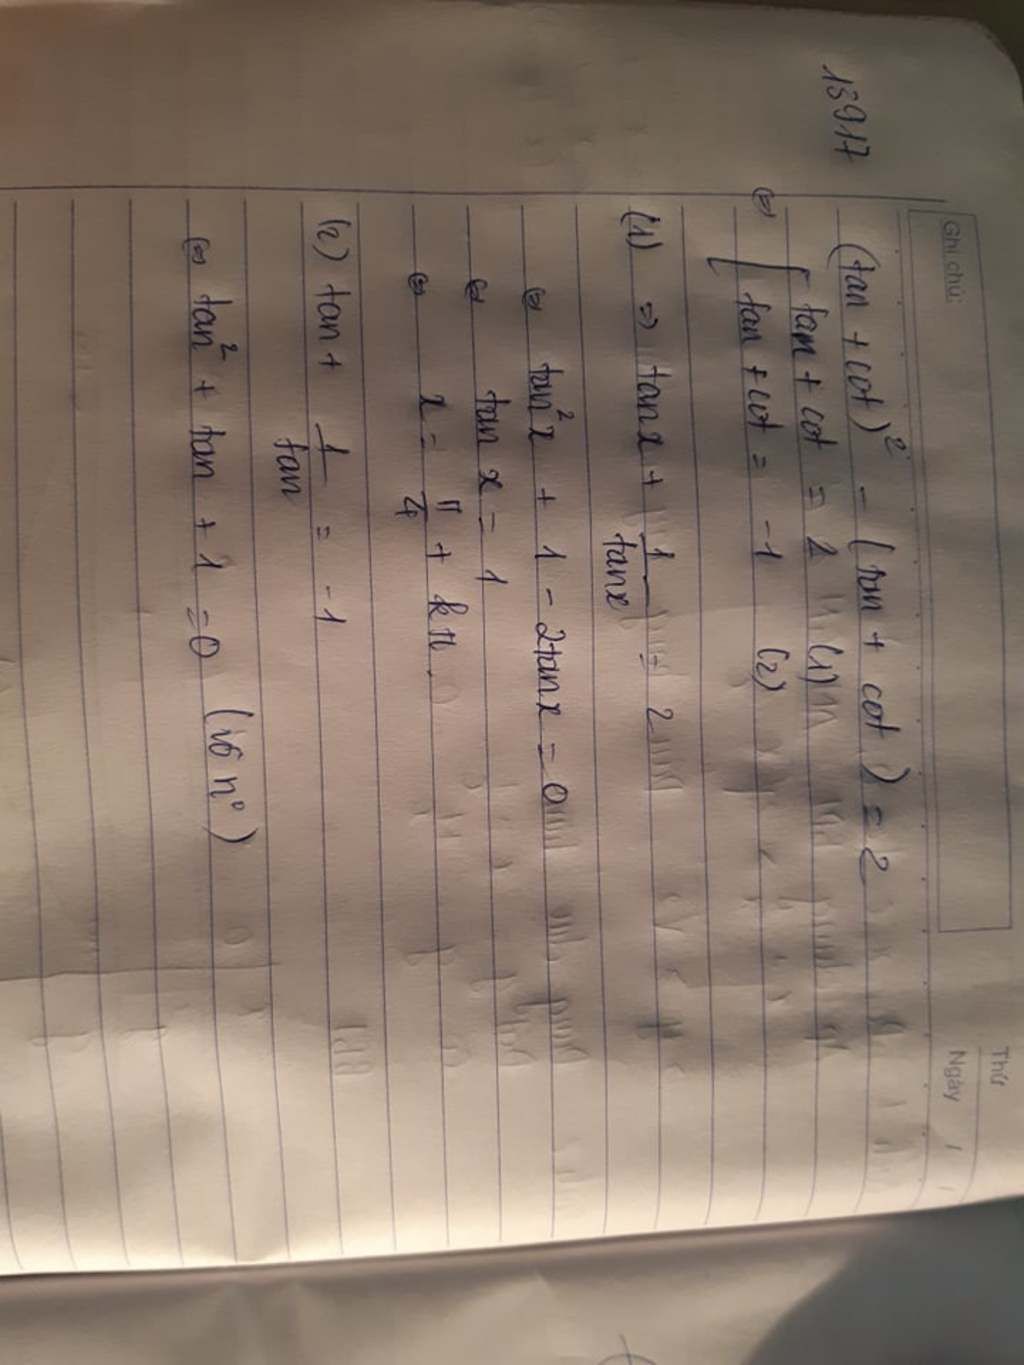 Ghi chú:
Thứ
Ngày
13917
(tan + cot)² - (tan + cot) = 2
⇔ [ tan + cot = 2 (1)
tan + cot = -1 (2)
(1) ⇒ tanx + 1/tanx = 2
⇔ tan²x + 1 - 2tanx = 0
⇔ tan x = 1
⇔ x = π/4 + kπ.
(2) tan + 1/tan = -1
⇔ tan² + tan + 1 = 0 (vô n⁰)